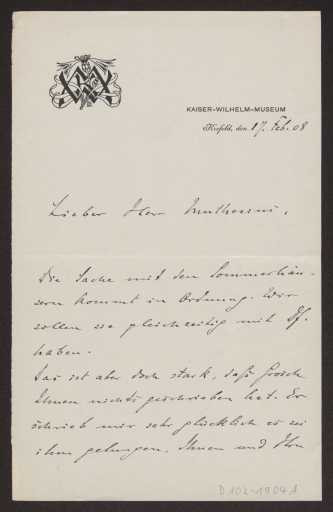 KAISER-WILHELM-MUSEUM
Krefeld, den 17. Feb. 08
Lieber Herr Muthesius,
Die Sache mit den Sommerhäu-
sern kommt in Ordnung. Wir
wollen sie gleichzeitig mit
haben.
Das ist aber doch stark, daß Grosch
Ihnen nichts geschrieben hat. Er
schrieb mir sehr glücklich es sei
ihm gelungen, Ihnen und
D 102-1904A